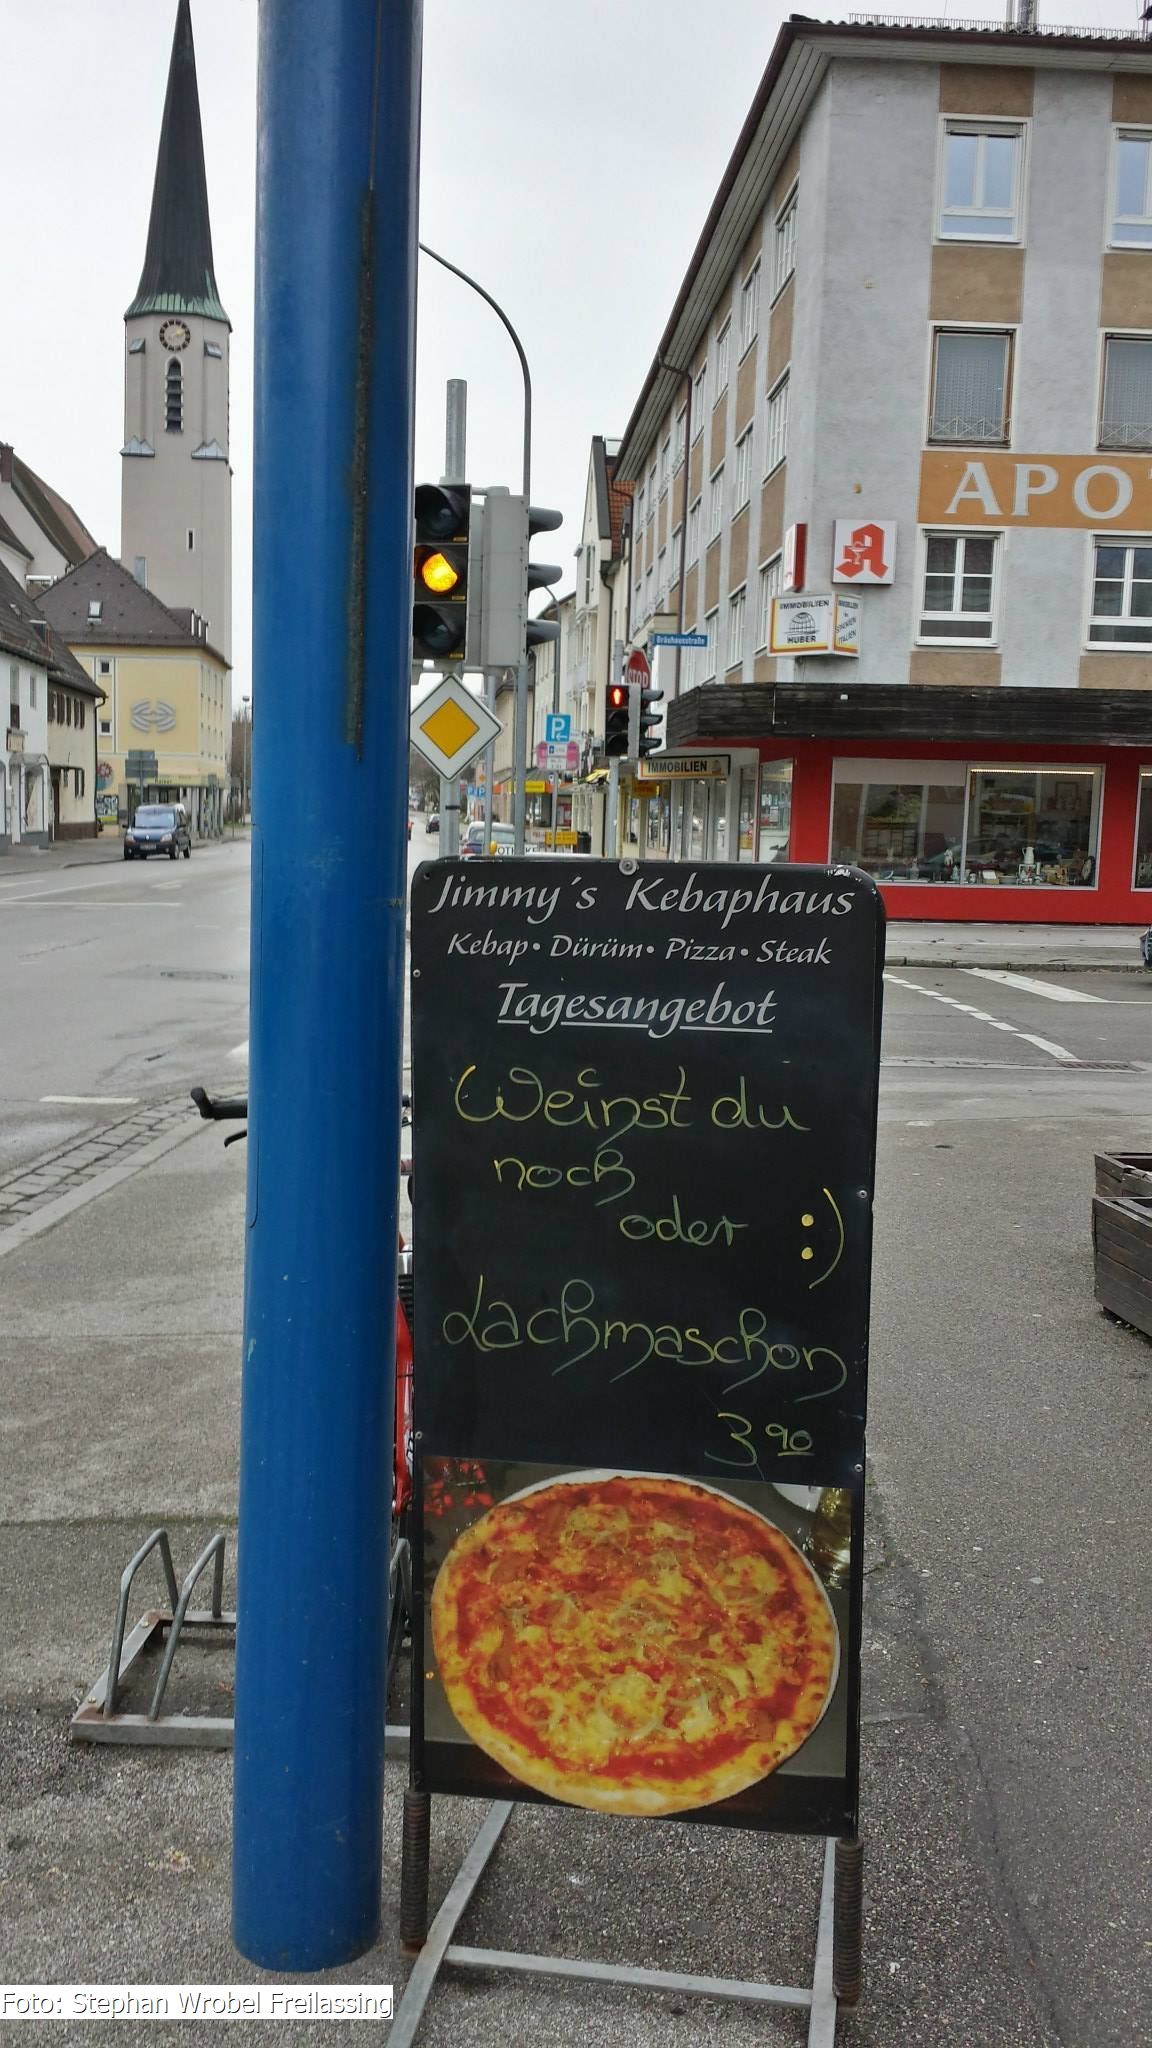 APO
IMMOBILIEN
HUBER
IMMOBILIEN
SPANIEN
ITALIEN
Bräuhausstraße
STOP
P
IMMOBILIEN
Jimmy´s Kebaphaus
Kebap • Dürüm • Pizza • Steak
Tagesangebot
Weinst du
noch
oder :)
Lachmaschon
3 90
Foto: Stephan Wrobel Freilassing